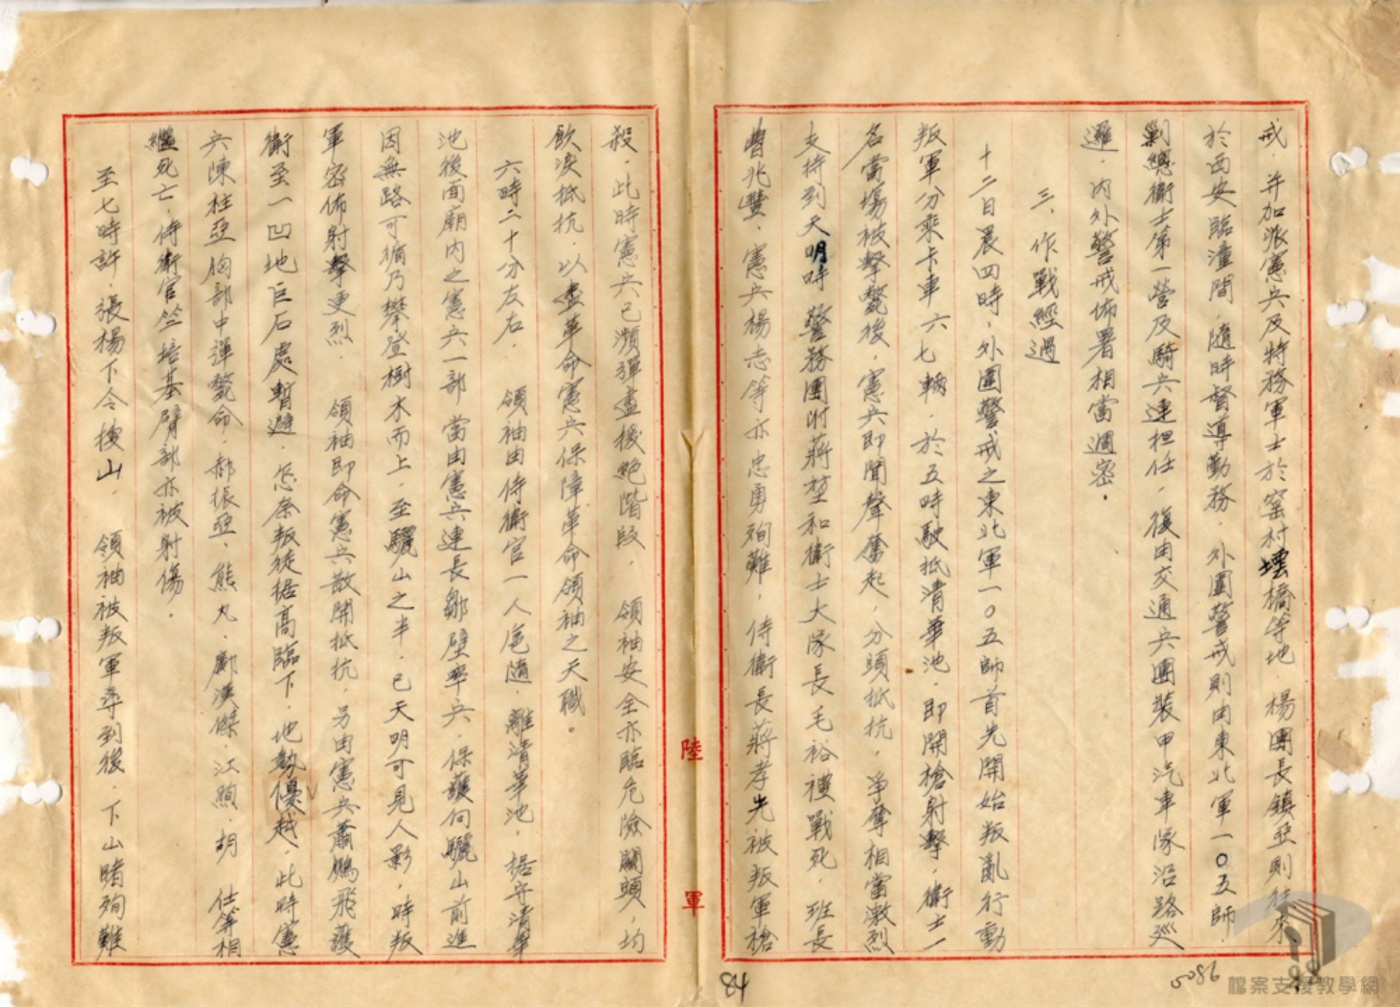 戒．并加派憲兵及特務軍士於窑村壩橋等地．楊團長鎮亞則往來
於西安臨潼間，隨時督導勤務．外圍警戒則由東北軍一０五師．
剿總衛士第一營及騎兵連担任，復由交通兵團裝甲汽車隊沿路巡
邏．內外警戒佈署相當週密．
三、作戰經過
十二日晨四時，外圍警戒之東北軍一０五師首先開始叛亂行動
叛軍分乘卡車六七輛．於五時駛抵清華池．即開槍射擊，衛士一
名當場被擊斃後，憲兵即聞聲奮起，分頭抵抗，爭奪相當激烈
支持到天明時，警務團附蔣堃和衛士大隊長毛裕禮戰死，班長
曹兆豐、憲兵楊志等亦忠勇殉難，侍衛長蔣孝先被叛軍槍
殺．此時憲兵已瀕彈盡援絕階段，領袖安全亦臨危險關頭，均
飲淚抵抗．以盡革命憲兵保障革命領袖之天職。
六時二十分左右．領袖由侍衛官一人危隨．離清華池，据守清華
池後面廟內之憲兵一部，當由憲兵連長鄒壁率兵．保護向驪山前進
因無路可循乃攀登樹木而上，至驪山之半．已天明可見人影，時叛
軍密佈射擊更烈．領袖即命憲兵散開抵抗，另由憲兵蕭鵬飛護
衛至一凹地巨石處暫避．怎奈叛徒据高臨下．地勢優越．此時憲
兵陳桂亞胸部中彈斃命，郝振亞、熊丸．鄺漢傑．江煦．胡 仕等相
繼死亡，侍衛官竺培基臂部亦被射傷。
至七時許，張楊下令搜山．領袖被叛軍尋到後．下山睹殉難
陸
軍
84
5086
檔案支援教學網